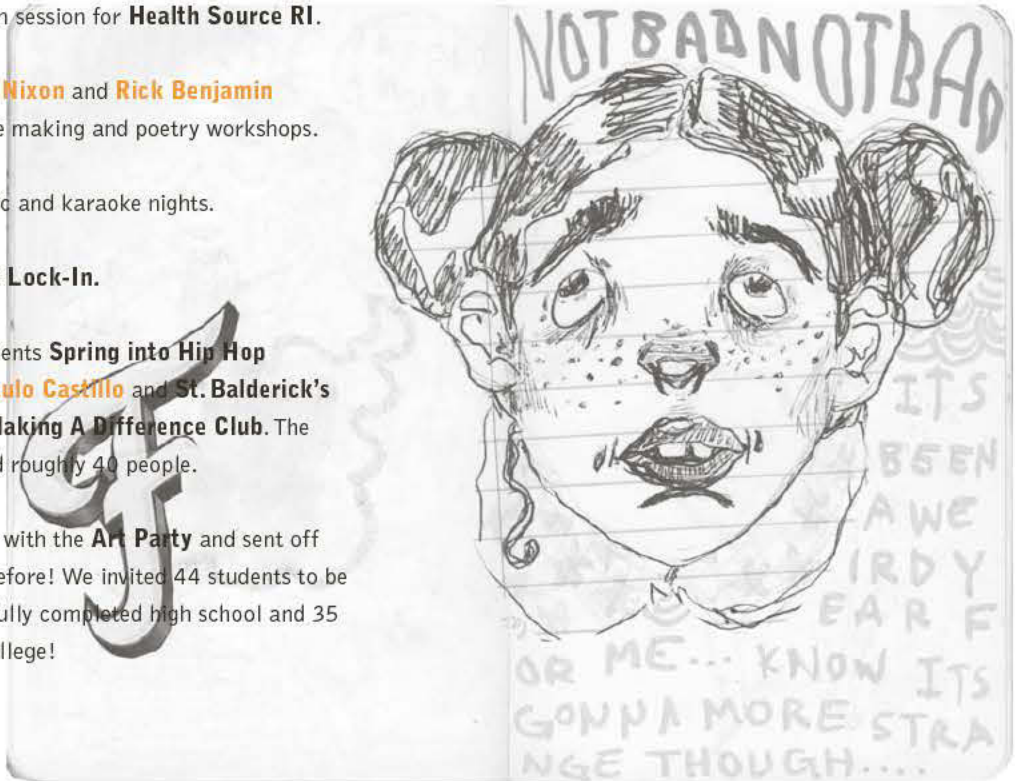 n session for Health Source RI.
Nixon and Rick Benjamin
e making and poetry workshops.
c and karaoke nights.
Lock-In.
ents Spring into Hip Hop
ulo Castillo and St. Balderick's
Making A Difference Club. The
d roughly 40 people.
with the Art Party and sent off
efore! We invited 44 students to be
ully completed high school and 35
llege!
F
NOT BAD NOT BAD
ITS
BEEN
A WE
IRD Y
EAR F
OR ME... KNOW ITS
GONNA MORE STRA
NGE THOUGH....